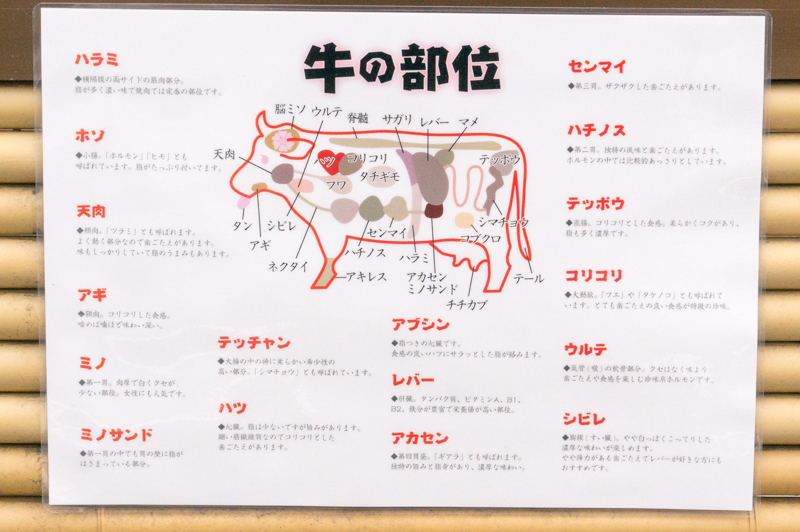 牛の部位
ハラミ
◆横隔膜の両サイドの筋肉部分。
脂が多く濃い味で焼肉では定番の部位です。
ホソ
◆小腸。「ホルモン」「ヒモ」とも
呼ばれています。脂がたっぷり付いてます。
天肉
◆頬肉。「ツラミ」とも呼ばれます。
よく動く部分なので歯ごたえがあります。
味もしっかりしていて脂のうまみもあります。
アギ
◆顎肉。コリコリした食感。
味わば噛ほど味わい深い。
ミノ
◆第一胃。肉厚で白くクセが
少ない部位。女性にも人気です。
ミノサンド
◆第一胃の中でも胃の壁に脂が
はさまっている部分。
脳ミソ
ウルテ
脊髄
サガリ
レバー
マメ
天肉
ハツ
コリコリ
タチギモ
フワ
テッポウ
タン
アギ
シビレ
ネクタイ
ハチノス
センマイ
ハラミ
アキレス
アカセン
ミノサンド
コブクロ
シマチョウ
チチカブ
テール
テッチャン
◆大腸の中の特に柔らかい希少性の
高い部分。「シマチョウ」とも呼ばれています。
ハツ
◆心臓。脂は少ないですが旨みがあります。
細い筋繊維質なのでコリコリとした
歯ごたえがあります。
アブシン
◆脂つきの心臓です。
食感の良いハツにサラッとした脂が絡みます。
レバー
◆肝臓。タンパク質、ビタミンA、B1、
B2、鉄分が豊富で栄養価が高い部位。
アカセン
◆第四胃袋。「ギアラ」とも呼ばれます。
独特の旨みと脂身があり、濃厚な味わい。
センマイ
◆第三胃。ザクザクした歯ごたえがあります。
ハチノス
◆第二胃。独特の風味と歯ごたえがあります。
ホルモンの中では比較的あっさりとしています。
テッポウ
◆直腸。コリコリとした食感。柔らかくコクがあり、
脂も多く濃厚です。
コリコリ
◆大動脈。「フエ」や「タケノコ」とも呼ばれて
います。とても歯ごたえの良い食感が特徴の珍味。
ウルテ
◆気管(喉)の軟骨部分。クセはなく味より
歯ごたえや食感を楽しむ珍味系ホルモンです。
シビレ
◆胸腺(すい臓)。やや白っぽくこってりした
濃厚な味わいが楽しめます。
やや弾力がある歯ごたえでレバーが好きな方にも
おすすめです。